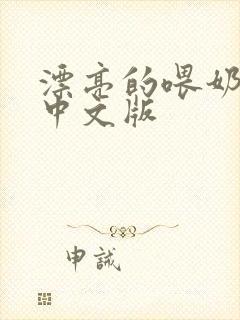 漂亮的喂奶
中文版
申誠